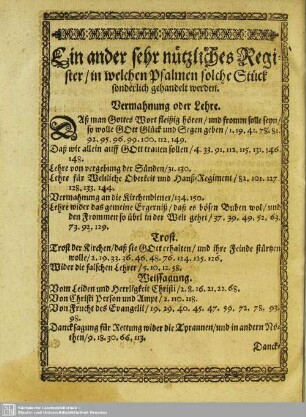 Ein ander sehr nützliches Regi-
ster / in welchen Psalmen solche Stück
sonderlich gehandelt werden.
Vermahnung oder Lehre.
Daß man Gottes Wort fleißig hören / und fromm solle seyn /
so wolle GOtt Glück und Segen geben / 1. 19. 42. 78. 81.
92. 95. 96. 99. 100. 112. 149.
Daß wir allein auff GOtt trauen sollen / 4. 33. 91. 112. 115. 131. 146.
148.
Lehre von vergebung der Sünden / 31. 130.
Lehre für Weltliche Oberkeit und Hauß-Regiment / 82. 101. 127.
128. 133. 144.
Vermahnung an die Kirchendiener / 134. 150.
Lehre wider das gemeine Ergerniß / daß es bösen Buben wol / und
den Frommen so übel in der Welt gehet / 37. 39. 49. 52. 63.
73. 92. 129.
Trost.
Trost der Kirchen / daß sie GOtt erhalten / und ihre Feinde stürtzen
wolle / 2. 19. 33. 36. 46. 48. 76. 114. 125. 126.
Wider die falschen Lehrer / 5. 10. 12. 58.
Weissagung.
Vom Leiden und Herrligkeit Christi / 2. 8. 16. 21. 22. 68.
Von Christi Person und Ampt / 2. 110. 118.
Vom Fruchte des Evangelii / 19. 29. 40. 45. 47. 59. 72. 78. 93.
98.
Dancksagung für Rettung wider die Tyrannen / und in andern Nö-
then / 9. 18. 30. 66. 113.
Danck-